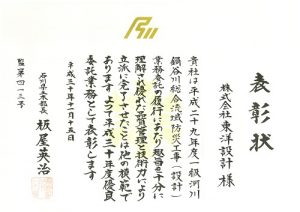 表彰状
株式会社東洋設計 様
貴社は平成二十九年度一級河川
鍋谷川総合流域防災工事(設計)
業務委託の履行にあたり趣旨を十分に
理解され優れた品質管理と技術力により
立派に完了させたことは他の模範で
あります よって平成三十年度優良
委託業務として表彰します
平成三十年十月十五日
石川県土木部長 板屋英治
監第四一三号